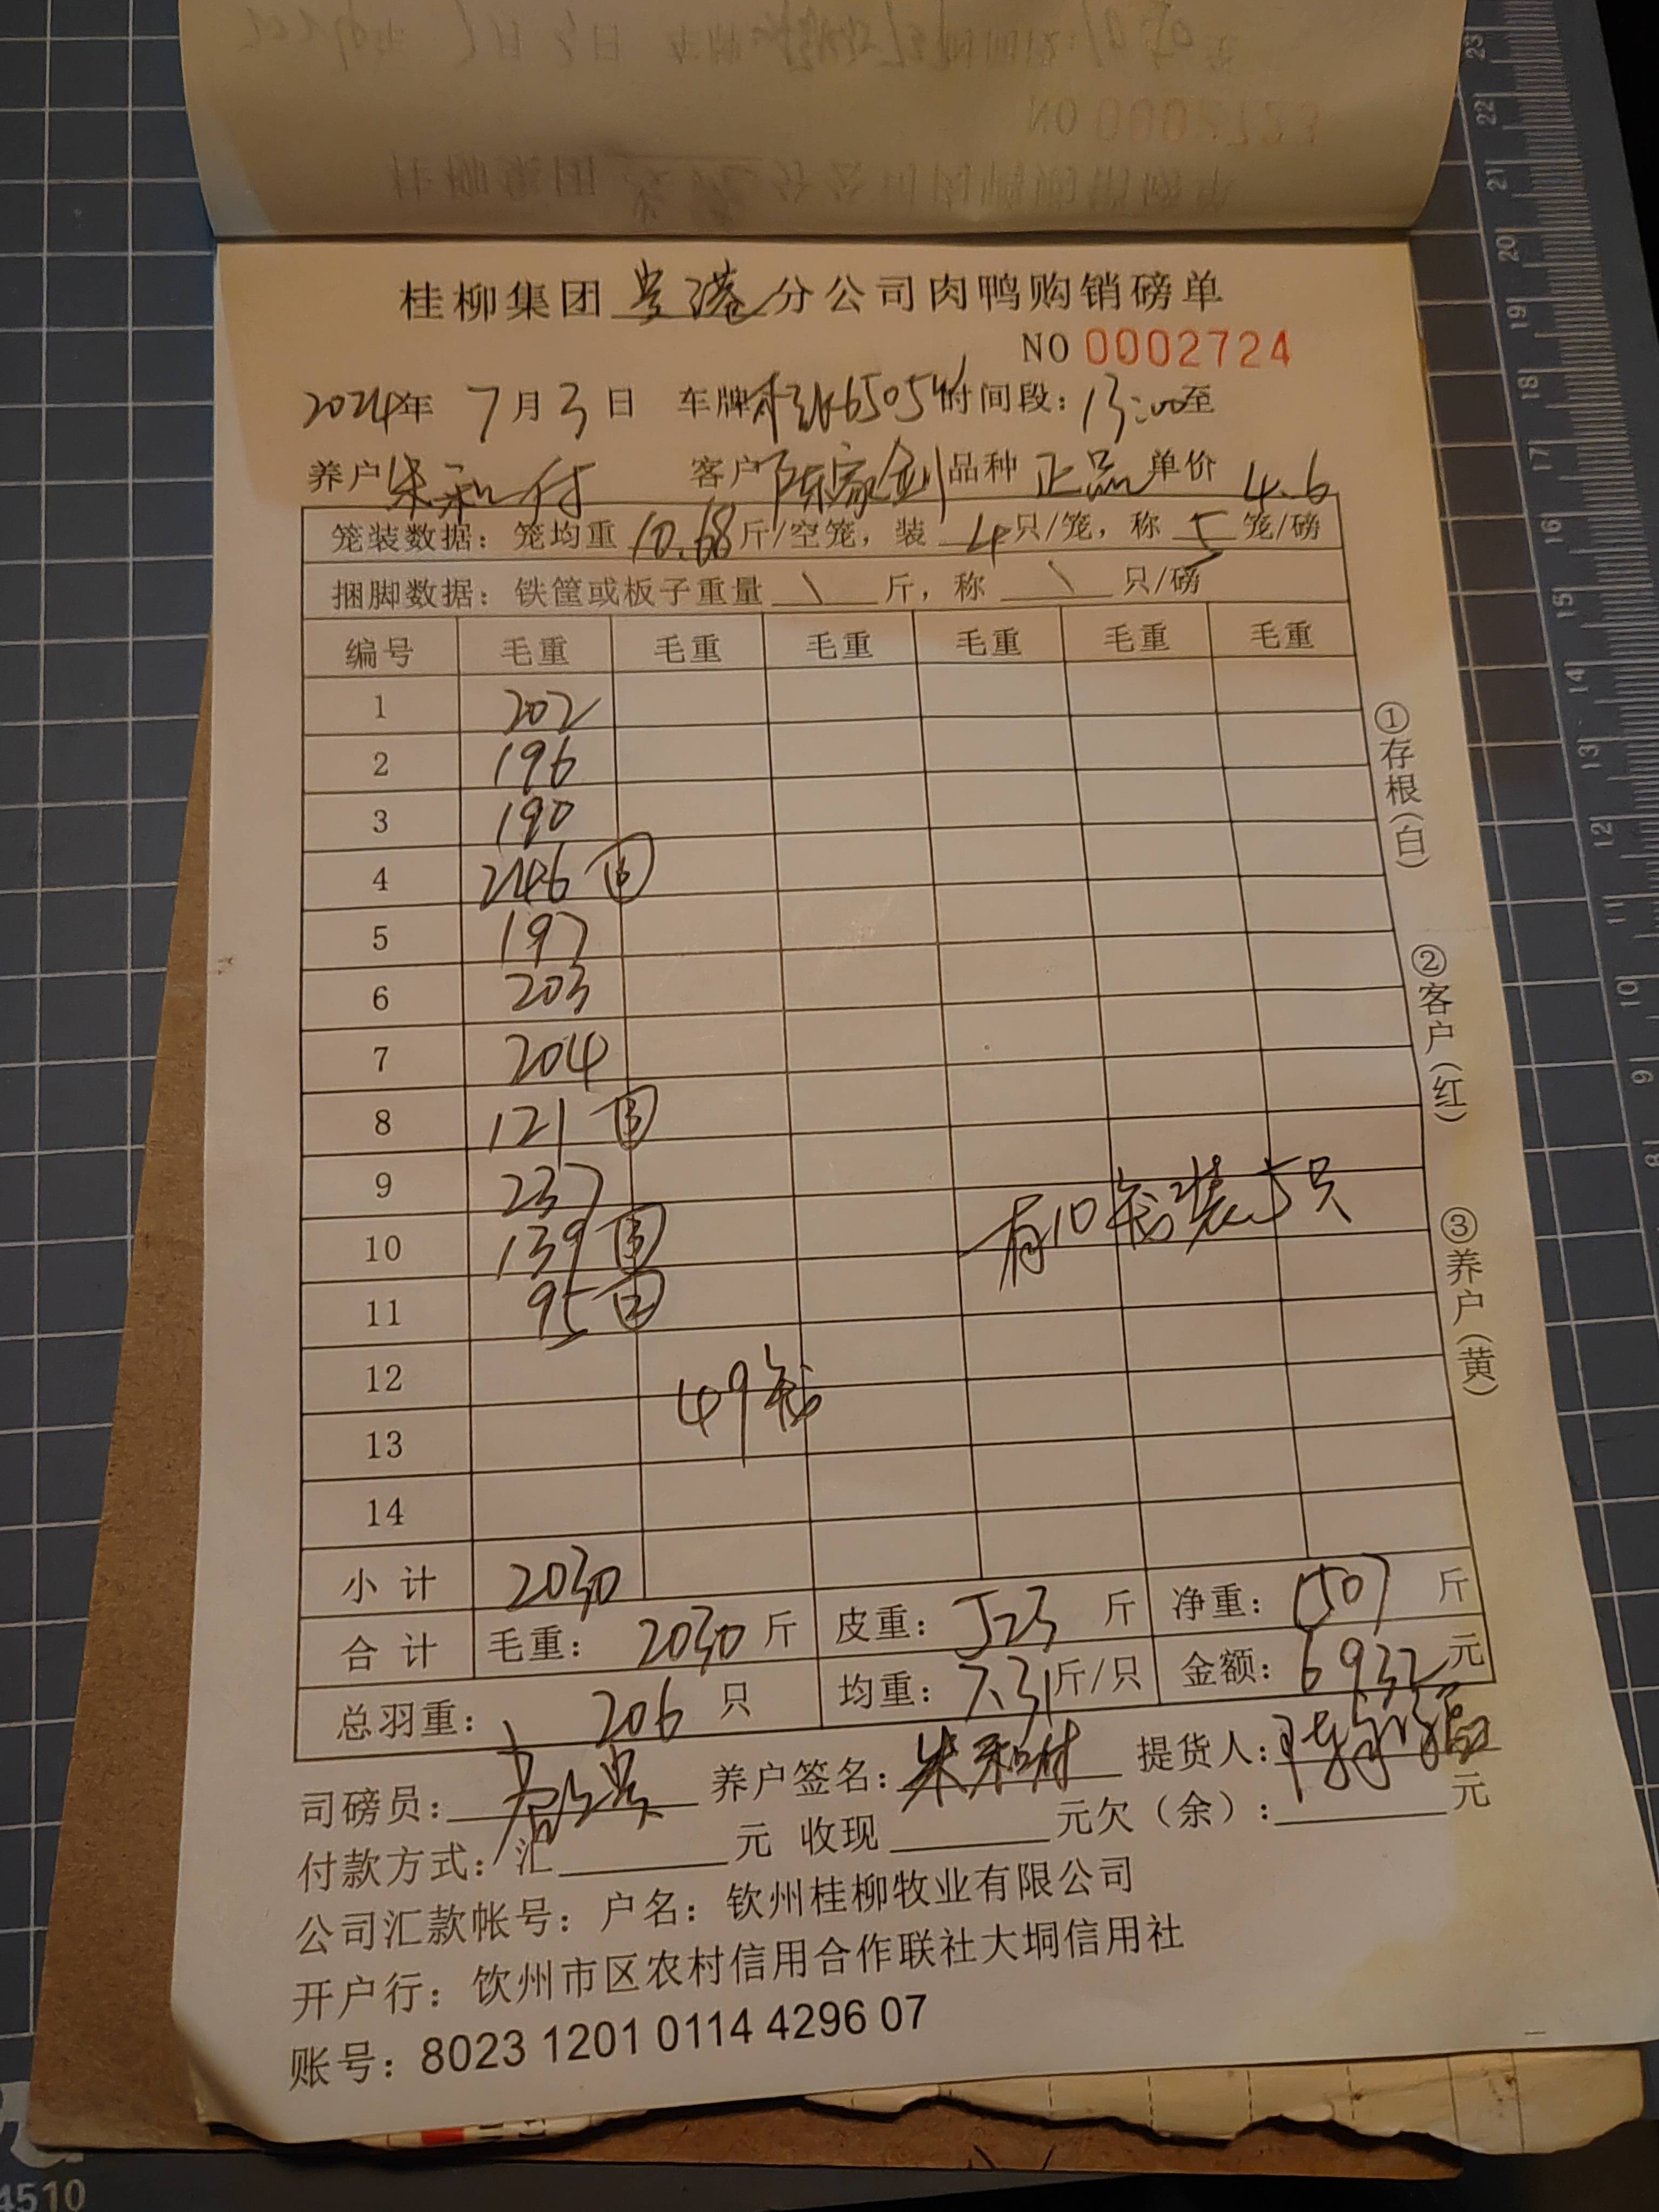 NO 0002723
桂柳集团贵港分公司肉鸭购销磅单
NO 0002724
2024年 7月3日 车牌 65054 时间段：13:00至
养户朱和付 客户陈家剑 品种 正品 单价 4.6
笼装数据：笼均重 10.68 斤/空笼，装 4 只/笼，称 5 笼/磅
捆脚数据：铁筐或板子重量 \ 斤，称 \ 只/磅
编号 毛重 毛重 毛重 毛重 毛重 毛重
1 202
2 196
3 190
4 246 ⑥
5 197
6 203
7 204
8 121 ③
9 237
10 139 ③ 有10笼装5只
11 95 ②
12
49笼
13
14
小计 2030
合计 毛重： 2030 斤 皮重： 523 斤 净重： 1507 斤
总羽重： 206 只 均重： 7.31 斤/只 金额： 6932 元
司磅员： 养户签名：朱和付 提货人：
付款方式：汇 元 收现 元欠（余）： 元
公司汇款帐号：户名：钦州桂柳牧业有限公司
开户行：钦州市区农村信用合作联社大垌信用社
账号：8023 1201 0114 4296 07
①存根（白）
②客户（红）
③养户（黄）
23
22
21
20
19
18
17
16
15
14
13
12
11
10
9
8
4510